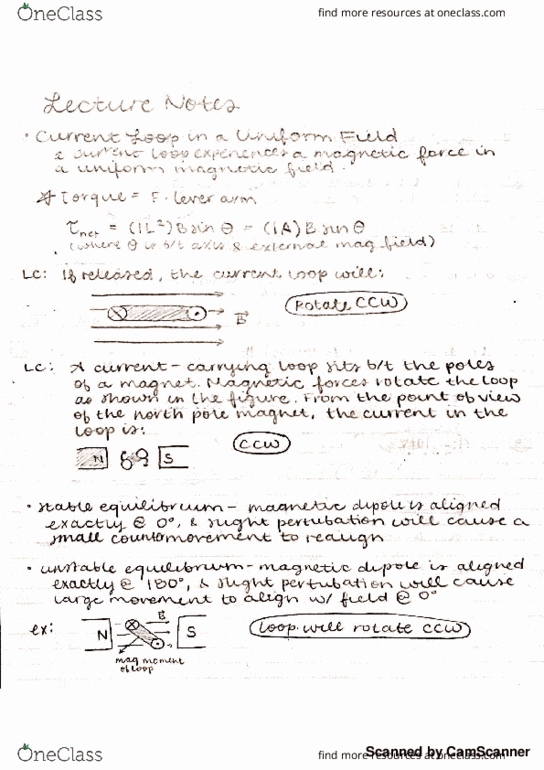 OneClass
find more resources at oneclass.com
Lecture Notes
• Current Loop in a Uniform Field
a current loop experiences a magnetic force in
a uniform magnetic field.
Torque = F · lever arm
τnet = (IL²)B sin θ = (IA)B sin θ
(where θ is b/t axis & external mag field)
LC: If released, the current loop will:
rotate CCW
B
LC: A current-carrying loop sits b/t the poles
of a magnet. Magnetic forces rotate the loop
as shown in the figure. From the point of view
of the north pole magnet, the current in the
loop is:
CCW
N S
• stable equilibrium - magnetic dipole is aligned
exactly @ 0°, & slight pertubation will cause a
small countermovement to realign
• unstable equilibrium - magnetic dipole is aligned
exactly @ 180°, & slight pertubation will cause
large movement to align w/ field @ 0°
ex: N B S
loop will rotate CCW
mag moment
of loop
Scanned by CamScanner
OneClass
find more resources at oneclass.com